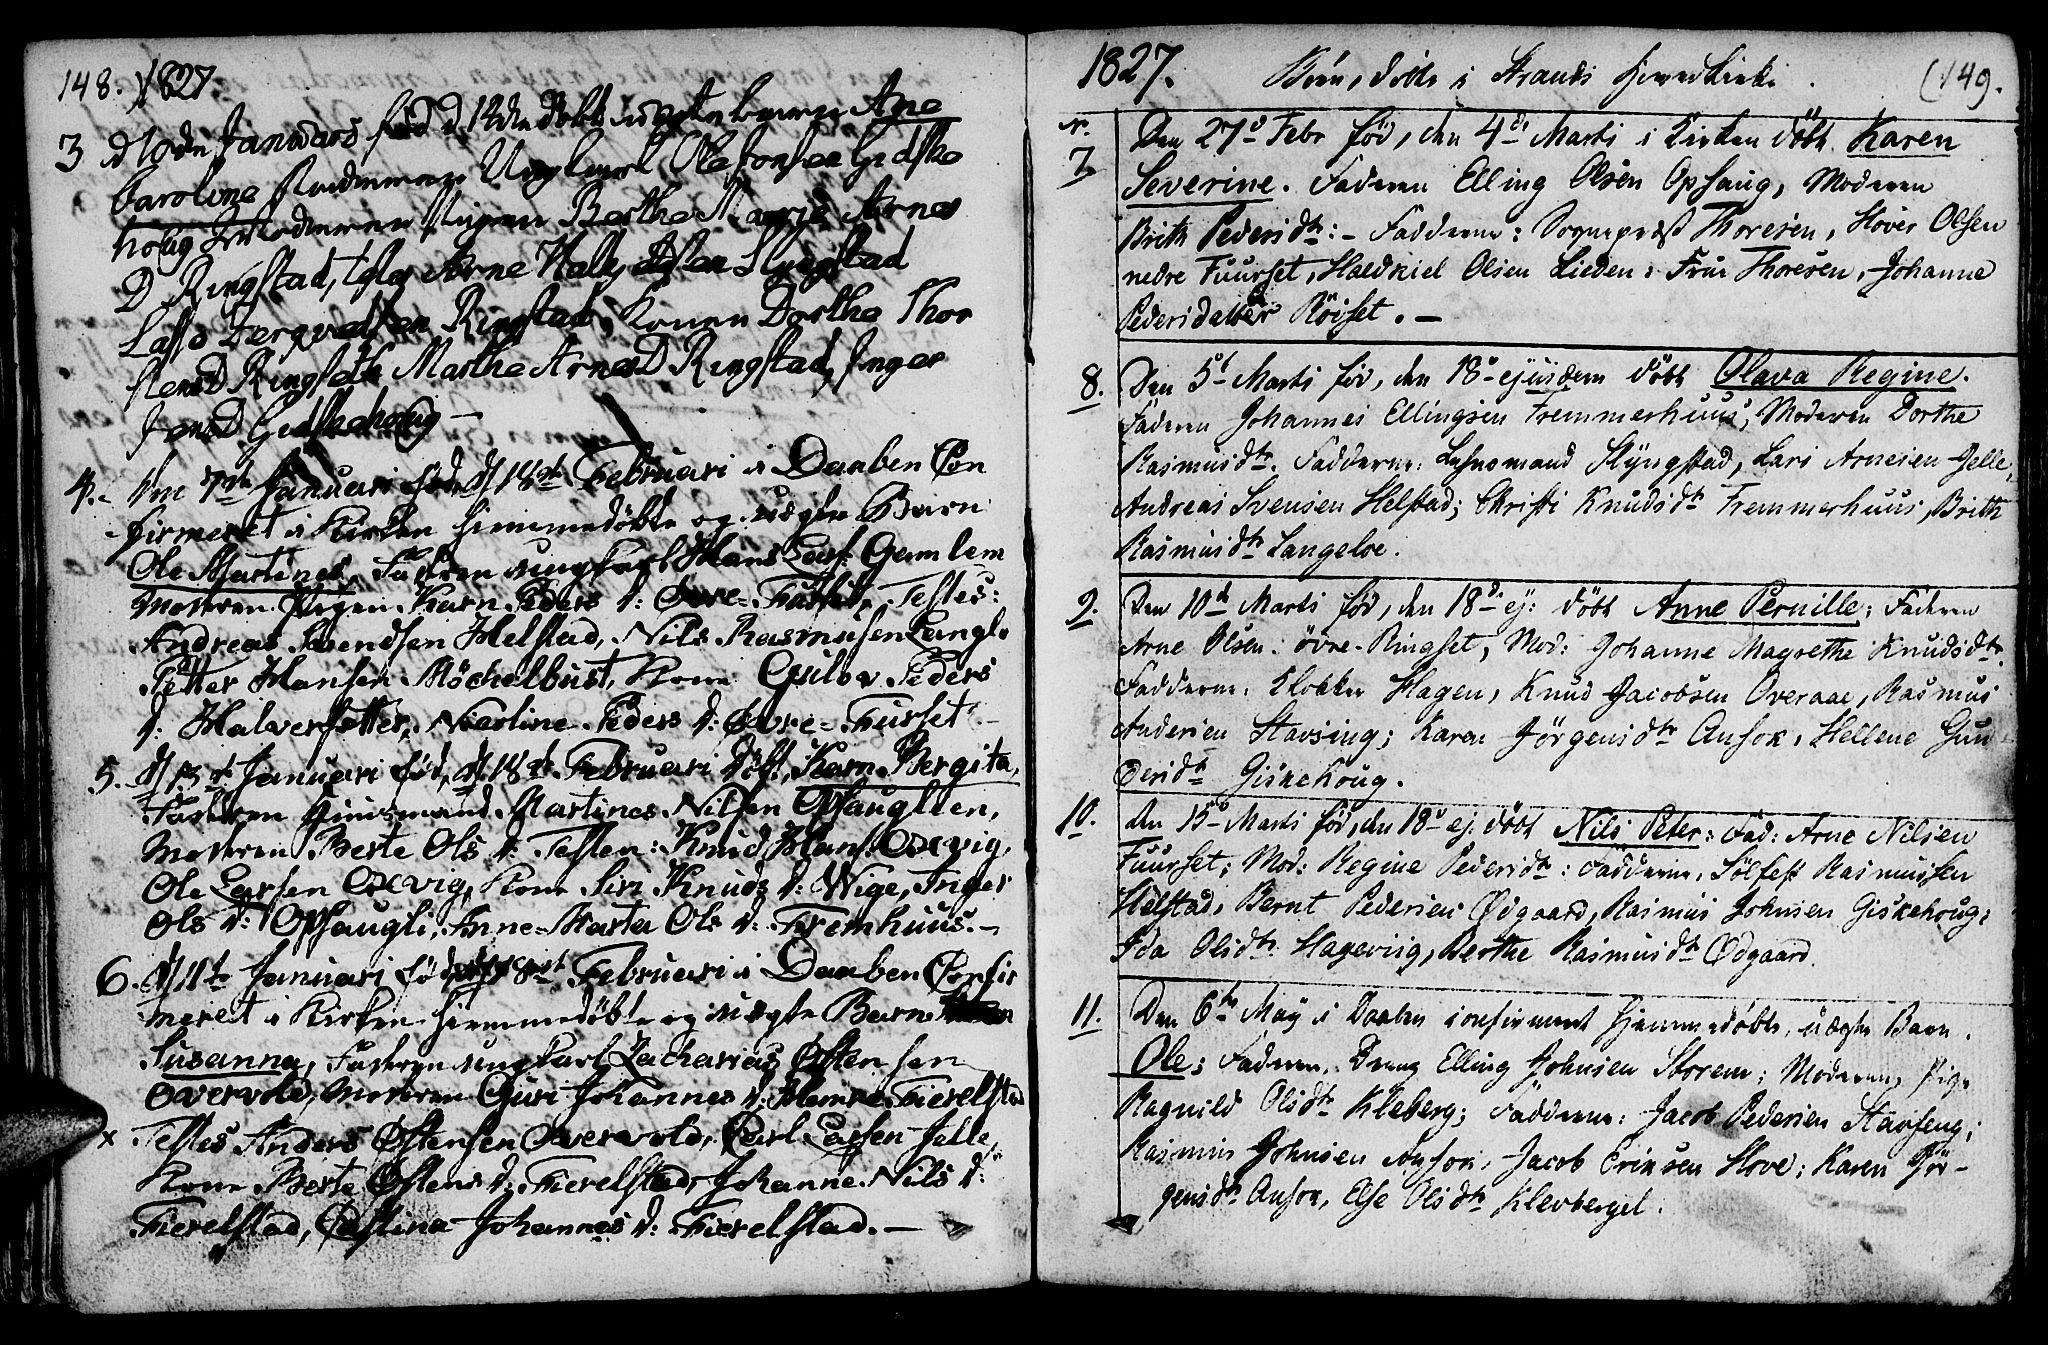 148. 1827.
3 d 10de Januars fød d 12te døbt uægte barn Ane
Caroline Ole Jonsen Gidske
houg Moderen Pigen Berthe Marie Arnes
D Ringstad, Arne Halle, Slyngstad
Lasse Ringstad, Konen Dorthe Thor
stensD Ringseth Marthe ArnesD Ringstad, Inger
JensD Gidskehoug —
4. Den 7de Januari fød, d 18de Februari i Daaben Con
firmeret i Kirken hiemmedøbte og uægte Barn
Ole Martines, Fadren ungkarl Hans Gamlem
Modren Pigen Karn Peders d: Øvre-Furset, Testes:
Andreas Svendsen Helstad, Nils Rasmusen Langlo
Petter Hansen Möchelbust, Kone Gulov Peders
d: Halversetter, Nicoline Peders d: Øvre-Furset —
5. d 13de Januari fød, d 18de Februari døbt, Karn Bergita,
Fadren Huusmand Martines Nilsen Opsauglien,
Modren Berte Ols d: Testes: Knud Hans: Oxvig,
Ole Larsen Oxvig, Kone Siri Knuds d: Wige, Inger
Ols d: Opsaugli, Anne-Marta Ols d: Fremhuus. —
6. d 11te Januari fød, 18de Februari i Daaben Confir
meret i Kirken hiemmedøbte og uægte Barn
Susanna, Fadren ungkarl Zacharias Østensen
Overvold, Modren Guri Johannes d: Fierelstad
x Testes Anders Østensen Overvold, Carl Larsen Jelle,
Kone Berte Østens d: Fierelstad, Johanne Nils d:
Fierelstad, Johannes d: Fierelstad. —
1827. Börn, döbte i Strands Hovedkirke. (149.
n.
7. Den 27d Febr fød, den 4de Marti i Kirken döbt Karen
Severine. Faderen Elling Olsen Opsaug, Moderen
Brith Pedersdtr: – Fadderne: Sognepræst Thoresen, Sövér Olsen
nedre Fuurset, Olsen Lieden; Frue Thoresen, Johanne
Pedersdatter Röiset. —
8. Den 5d Marti fød, den 18d ejusdem döbt Olava Regine.
Faderen Johannes Ellingsen Fremmerhuus, Moderen Dorthe
Rasmusdtr. Fadderne: Lehnsmand Slyngstad, Lars Arnesen Jelle,
Andreas Svensen Helstad; Christi Knudsdtr Fremmerhuus, Brith
Rasmusdtr Langeloe.
9. Den 10de Marti fød, den 18de ej: döbt Anne Pernille; Faderen
Arne Olsen övre-Ringset, Mod: Johanne Magrethe Knudsdtr.
Fadderne, Klokker Hagen, Knud Jacobsen Overaae, Rasmus
Andersen Stavsing; Karen Jörgensdtr Ansok, Hellene Gun
dersdtr Giskehoug.
10. den 15d Marti fød, den 18d ej. döbt Nils Peter; Fad: Arne Nilsen
Fuurset; Mod: Regine Pedersdtr: Fadderne, Sölfest Rasmussen
Helstad, Bernt Pedersen Ødgaard, Rasmus Johnsen Giskehoug;
Ida Olsdtr Hagevig, Berthe Rasmusdtr Ødgaard.
11. Den 6te May i Daaben confirmert hjemmedøbte, uægte Barn.
Ole; Faderen, Dreng Elling Johnsen Storem; Moderen, Pige
Ragnild Olsdtr Kleberg; Fadderne: Jacob Pedersen Stavseng;
Rasmus Johnsen Ansok, Jacob Ericsen Hove; Karen Jör-
gensdtr Ansok, Else Olsdtr Klevberget.